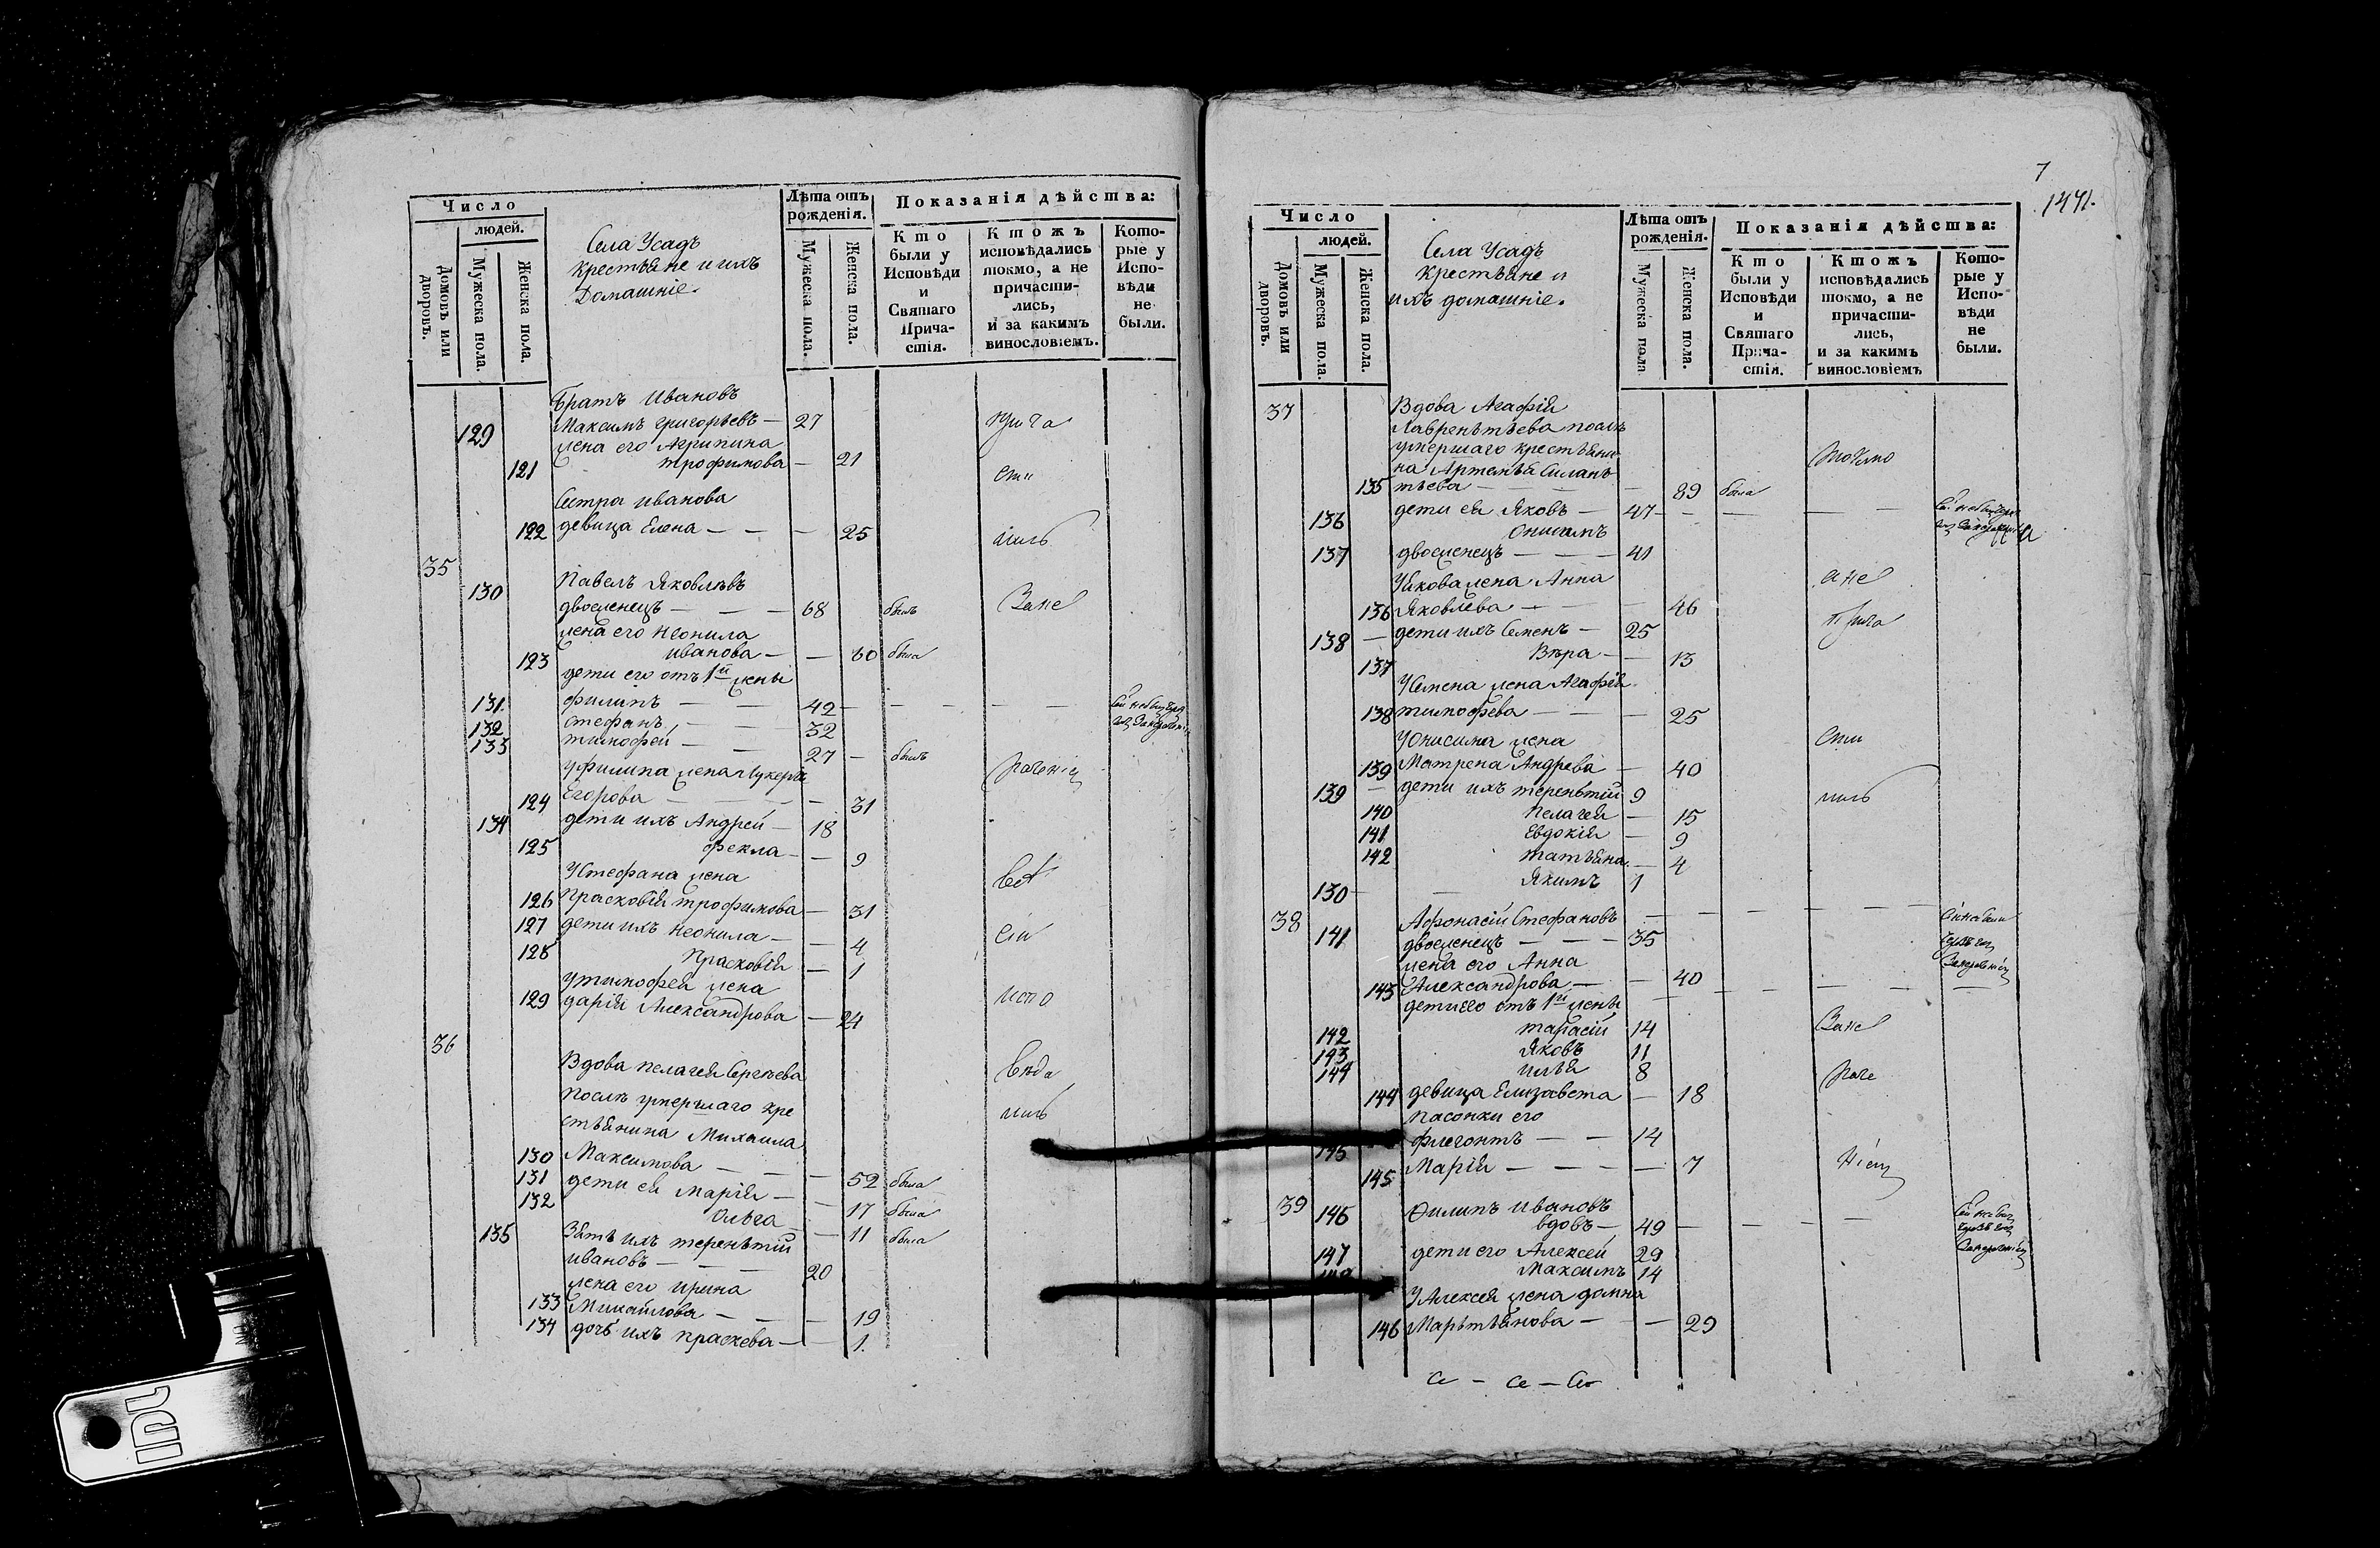 Число
людей.
Домовъ или дворовъ.
Мужеска пола.
Женска пола.
Села Усадъ
крестьяне и ихъ
Домашніе.
Лѣта отъ рожденія.
Мужеска пола.
Женска пола.
Показанія дѣйства:
Кто были у Исповѣди и Святаго Прича-стія.
Ктожъ исповѣдались токмо, а не причасти-лись, и за какимъ винословіемъ.
Кото-рые у Испо-вѣди не были.
Братъ Ивановъ
129 Максимъ Григорьевъ — 27 прича
жена его Агрипина
121 Трофимова — 21 сти
Сестра Иванова
122 девица Елена — — — 25 лись
35
130 Павелъ Яковлевъ
двоеженецъ — — — 68 былъ Зане
жена его Неонила
123 Иванова — — 60 была
дети его отъ 1й жены
131. Филипъ — — 42 — — — — —
132 Стефанъ — — 32
133 Тимофей — — 27 — былъ
у Филипа жена Гликерья
124 Егорова — — — — 31
134 дети ихъ Андрей — 18
125 Фекла — — 9
У Стефана жена
126 Прасковія Трофимова — 31
127 дети ихъ Неонила — — 4
128 Прасковія — 1
у Тимофея жена
129 Дарія Александрова — 24 испо
36
Вдова Пелагея Сергѣева вѣда
послѣ умершаго кре лись
стьянина Михаила
130 Максимова — — — 52 была
131 дети ея Марія — — 17 была
132 Ольга — — 11 была
135 Зять ихъ Терентій
Ивановъ — — — 20
жена его Ирина
133 Михайлова — — — 19
134 дочь ихъ Праскева — — 1.
7
1471.
Число
людей.
Домовъ или дворовъ.
Мужеска пола.
Женска пола.
Села Усадъ
крестьяне и
ихъ домашніе.
Лѣта отъ рожденія.
Мужеска пола
Женска пола.
Показанія дѣйства:
Кто были у Исповѣди и Святаго Прича-стія.
Ктожъ исповѣдались токмо, а не причасти-лись, и за какимъ винословіемъ
Кото-рые у Испо-вѣди не были.
37 Вдова Агафія
Лаврентьева послѣ
умершаго крестьяни
на Артемья Силан токмо
135 тьева — — — 89 была
136 дети ея Яковъ — 47 — — — —
Онисимъ
137 двоеженецъ — — — 41
У Якова жена Анна а не
136 Яковлева — — — 46
138 — дети ихъ Семенъ — 25 прича
137 Вѣра — — 13
У Семена жена Агафія
138 Тимофеева — — — 25
У Онисима жена сти
139 Матрена Андрева — 40
139 — дети ихъ Терентій 9 лись
140 Пелагея — 15
141 Евдокія — 9
142 Татьяна — 4
130 — — Якимъ 1
38 Афонасій Стефановъ — — — — — —
141 двоеженецъ — — — 35
жена его Анна
143 Александрова — — 40 — — — —
дети его отъ 1й жены
142 Тарасій 14 Зане
143 Яковъ 11
144 Илья 8
144 девица Елизавета — 18
пасонки его
145 Флегонтъ — — 14
145 Марія — — — — 7
39 146 Филипъ Ивановъ
вдовъ — 49 — — — —
147 дети его Алексей 29
Максимъ 14
У Алексея жена Домна
146 Мартьянова — — 29